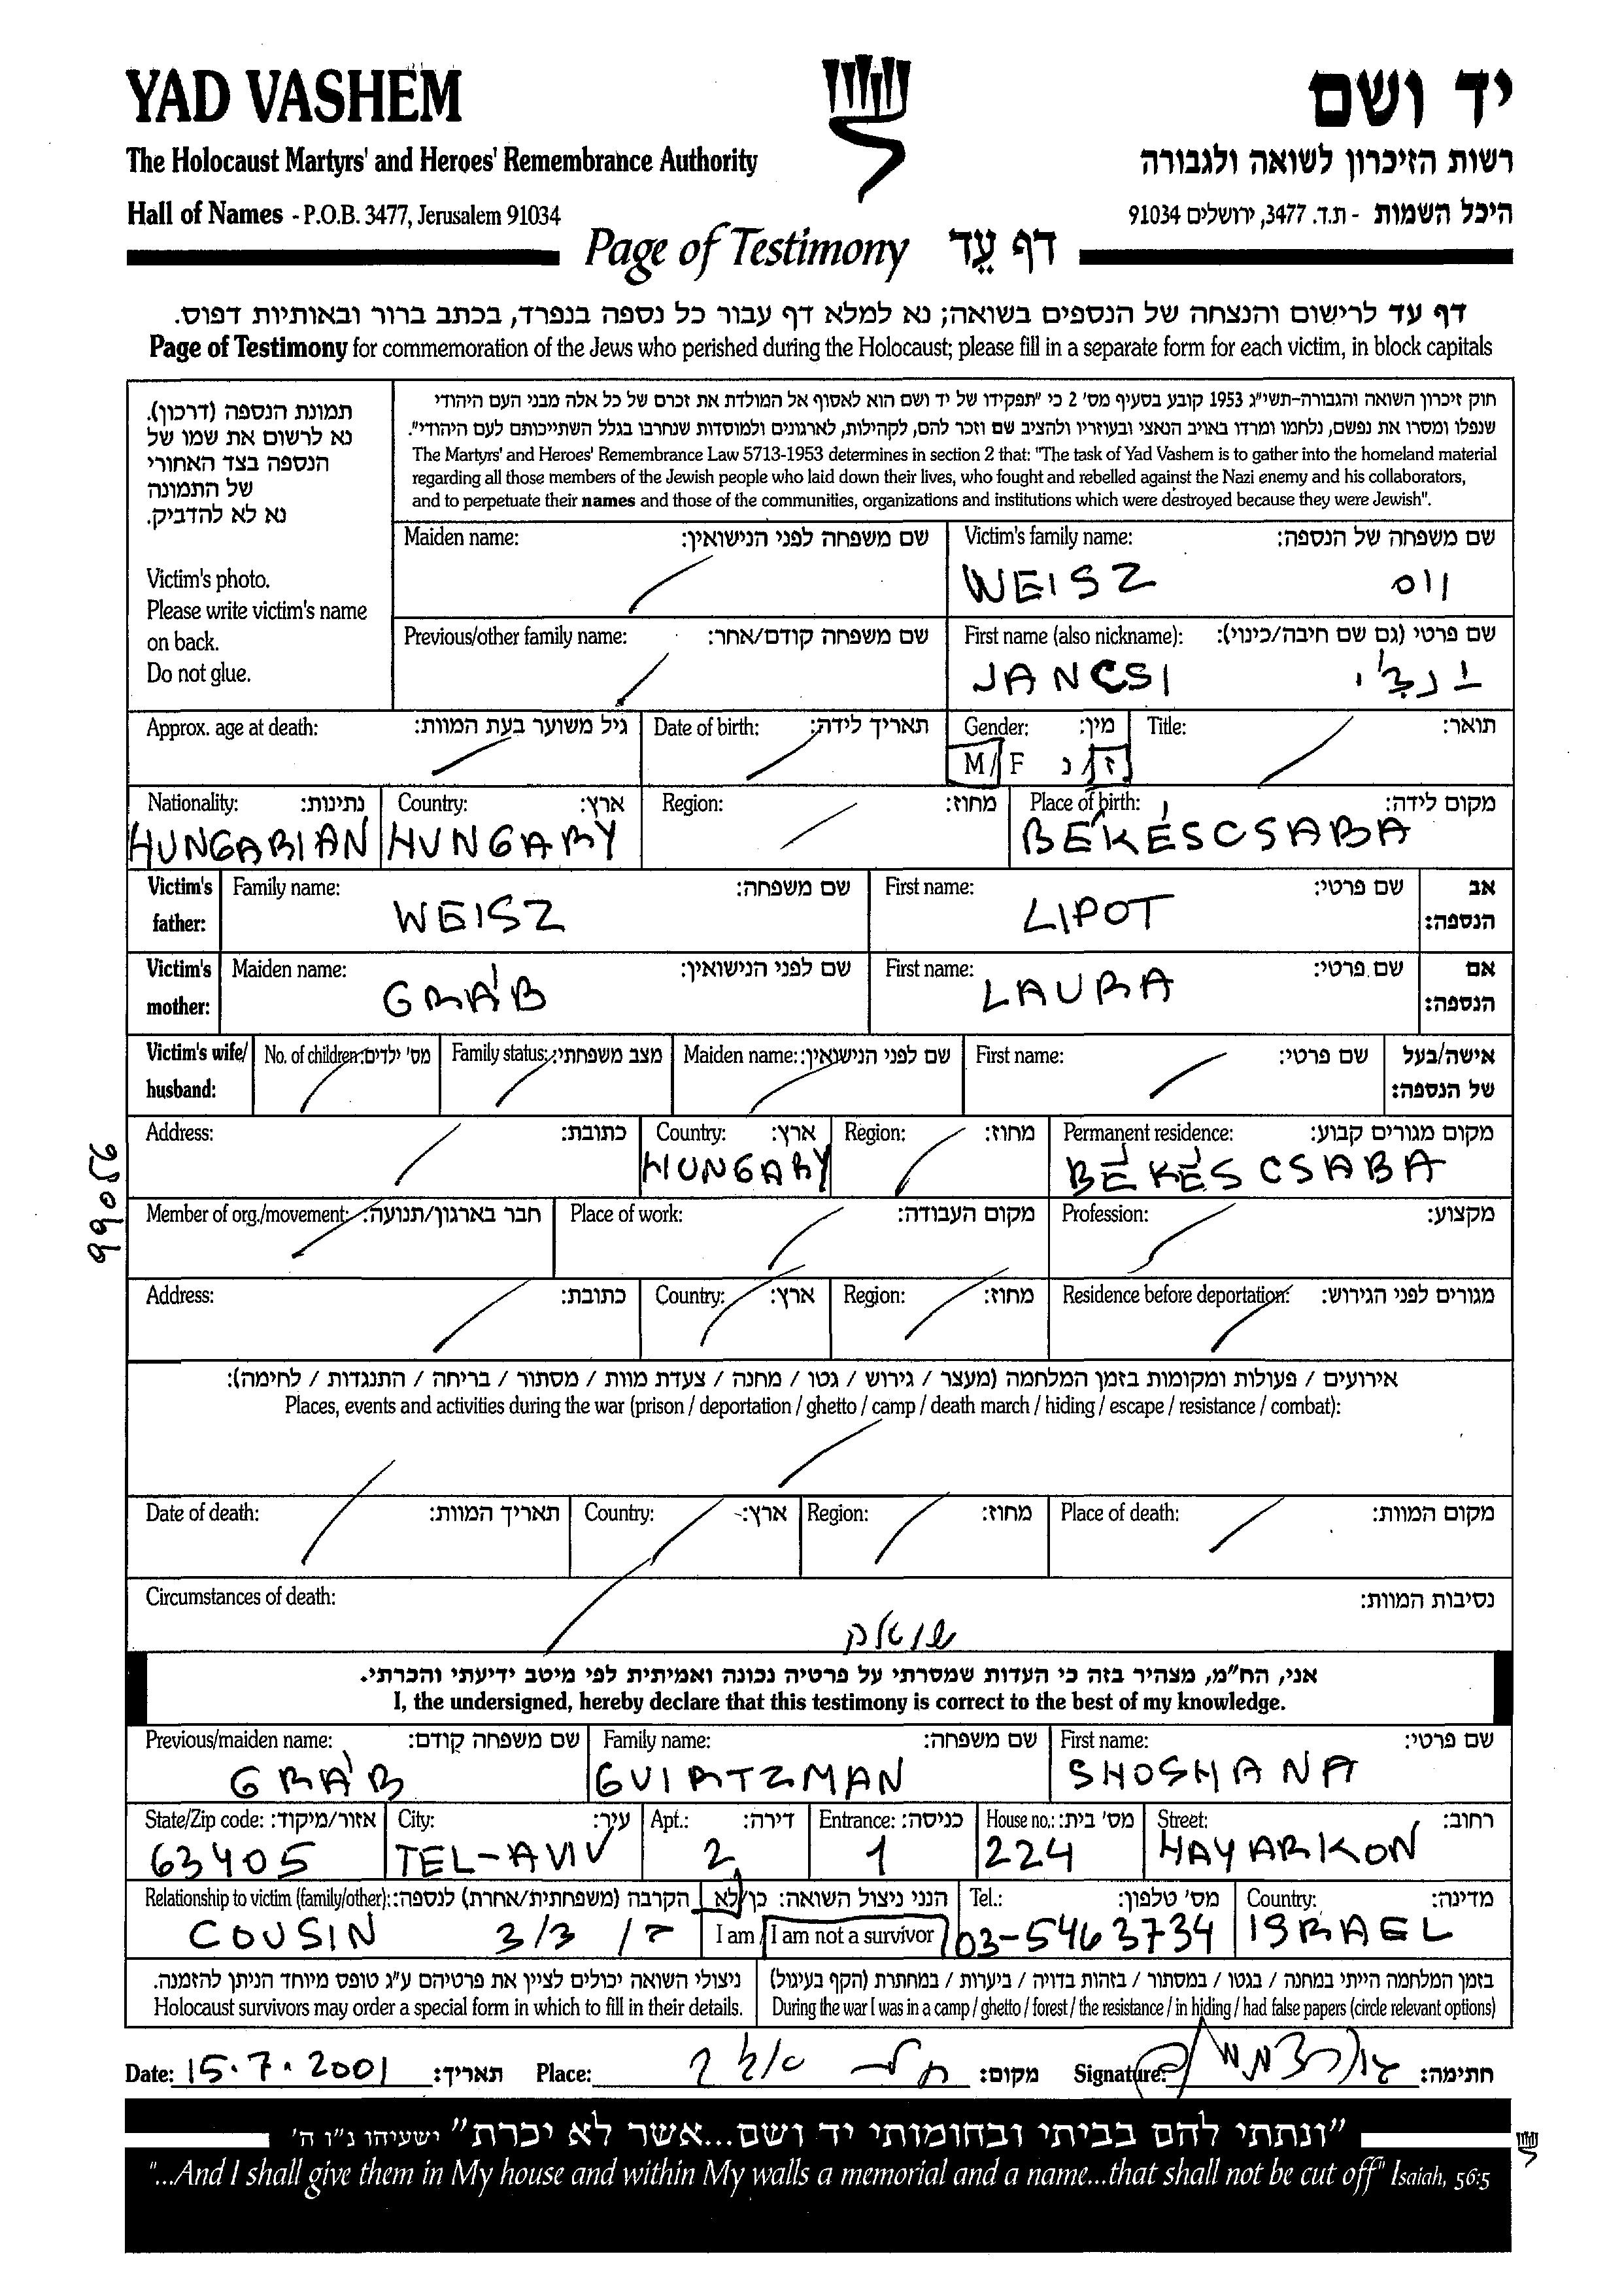 YAD VASHEM
יד ושם
The Holocaust Martyrs' and Heroes' Remembrance Authority
רשות הזיכרון לשואה ולגבורה
Hall of Names - P.O.B. 3477, Jerusalem 91034
היכל השמות - ת.ד. 3477, ירושלים 91034
Page of Testimony דף עֵד
דף עד לרישום והנצחה של הנספים בשואה; נא למלא דף עבור כל נספה בנפרד, בכתב ברור ובאותיות דפוס.
Page of Testimony for commemoration of the Jews who perished during the Holocaust; please fill in a separate form for each victim, in block capitals
תמונת הנספה (דרכון).
נא לרשום את שמו של
הנספה בצד האחורי
של התמונה
נא לא להדביק.
Victim's photo.
Please write victim's name
on back.
Do not glue.
חוק זיכרון השואה והגבורה-תשי"ג 1953 קובע בסעיף מס' 2 כי "תפקידו של יד ושם הוא לאסוף אל המולדת את זכרם של כל אלה מבני העם היהודי
שנפלו ומסרו את נפשם, נלחמו ומרדו באויב הנאצי ובעוזריו ולהציב שם וזכר להם, לקהילות, לארגונים ולמוסדות שנחרבו בגלל השתייכותם לעם היהודי".
The Martyrs' and Heroes' Remembrance Law 5713-1953 determines in section 2 that: "The task of Yad Vashem is to gather into the homeland material
regarding all those members of the Jewish people who laid down their lives, who fought and rebelled against the Nazi enemy and his collaborators,
and to perpetuate their names and those of the communities, organizations and institutions which were destroyed because they were Jewish".
Maiden name: שם משפחה לפני הנישואין:
Victim's family name: שם משפחה של הנספה:
WEISZ ווס
Previous/other family name: שם משפחה קודם/אחר:
First name (also nickname): שם פרטי (גם שם חיבה/כינוי):
JANCSI
Approx. age at death: גיל משוער בעת המוות:
Date of birth: תאריך לידה:
Gender: מין:
M/F ז/נ
Title: תואר:
Nationality: נתינות:
HUNGARIAN
Country: ארץ:
HUNGARY
Region: מחוז:
Place of birth: מקום לידה:
BÉKÉSCSABA
Victim's father: Family name: שם משפחה:
WEISZ
First name: שם פרטי:
LIPOT
אב הנספה:
Victim's mother: Maiden name: שם לפני הנישואין:
GRÁB
First name: שם פרטי:
LAURA
אם הנספה:
Victim's wife/husband: No. of children: מס' ילדים:
Family status: מצב משפחתי:
Maiden name: שם לפני הנישואין:
First name: שם פרטי:
אישה/בעל של הנספה:
Address: כתובת:
Country: ארץ:
HUNGARY
Region: מחוז:
Permanent residence: מקום מגורים קבוע:
BÉKÉSCSABA
99056
Member of org./movement: חבר בארגון/תנועה:
Place of work: מקום העבודה:
Profession: מקצוע:
Address: כתובת:
Country: ארץ:
Region: מחוז:
Residence before deportation: מגורים לפני הגירוש:
אירועים / פעולות ומקומות בזמן המלחמה (מעצר / גירוש / גטו / מחנה / צעדת מוות / מסתור / בריחה / התנגדות / לחימה):
Places, events and activities during the war (prison / deportation / ghetto / camp / death march / hiding / escape / resistance / combat):
Date of death: תאריך המוות:
Country: ארץ:
Region: מחוז:
Place of death: מקום המוות:
Circumstances of death: נסיבות המוות:
אני, הח"מ, מצהיר בזה כי העדות שמסרתי על פרטיה נכונה ואמיתית לפי מיטב ידיעתי והכרתי.
I, the undersigned, hereby declare that this testimony is correct to the best of my knowledge.
Previous/maiden name: שם משפחה קודם:
GRÁB
Family name: שם משפחה:
GVIRTZMAN
First name: שם פרטי:
SHOSHANA
State/Zip code: אזור/מיקוד:
63405
City: עיר:
TEL-AVIV
Apt.: דירה:
2
Entrance: כניסה:
1
House no.: מס' בית:
224
Street: רחוב:
HAYARKON
Relationship to victim (family/other): הקרבה (משפחתית/אחרת) לנספה:
COUSIN
הנני ניצול השואה: כן/לא
I am / I am not a survivor
Tel.: מס' טלפון:
03-5463734
Country: מדינה:
ISRAEL
ניצולי השואה יכולים לציין את פרטיהם ע"ג טופס מיוחד הניתן להזמנה.
Holocaust survivors may order a special form in which to fill in their details.
בזמן המלחמה הייתי במחנה / בגטו / במסתור / בזהות בדויה / ביערות / במחתרת (הקף בעיגול)
During the war I was in a camp / ghetto / forest / the resistance / in hiding / had false papers (circle relevant options)
Date: 15.7.2001 תאריך:
Place: מקום:
Signature: חתימה:
"ונתתי להם בביתי ובחומותי יד ושם...אשר לא יכרת" ישעיהו נ"ו ה'
"...And I shall give them in My house and within My walls a memorial and a name...that shall not be cut off" Isaiah, 56:5